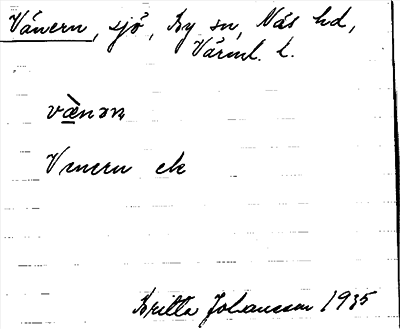 Vänern, sjö, By sn, Näs hd,
Värml. l.
væ̀nəɳ
Venern ek
Britta Johansson 1935